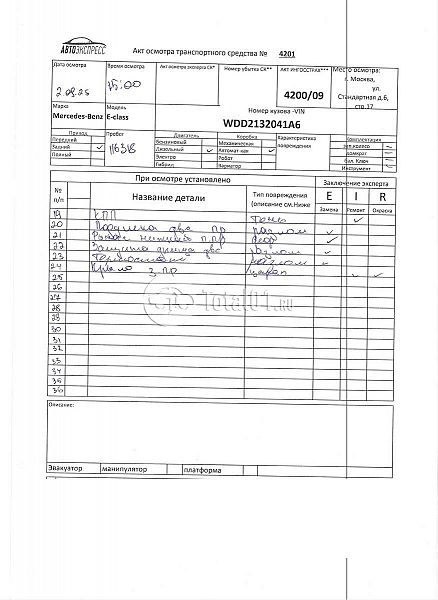 АВТОЭКСПРЕСС
Акт осмотра транспортного средства № 4201
Дата осмотра
Время осмотра
Акт осмотра эксперта СК*
Номер убытка СК**
АКТ ИНГОССТРАХ***
Место осмотра:
г. Москва,
ул.
Стандартная д.6,
стр.17
15:00
4200/09
Номер кузова -VIN
Марка
Модель
Mercedes-Benz E-class
WDD2132041A6
Привод
Пробег
Двигатель
Коробка
Характеристика
повреждения
Комплектация
Передний
Бензиновый
Механическая
зап.колесо
Задний ✓
116318
Дизельный ✓
Автомат-кая ✓
домкрат
Полный
Электро
Робот
бал. Ключ
Гибрид
Вариатор
Инструмент
При осмотре установлено
Заключение эксперта
№
п/п
Название детали
Тип повреждения
(описание см.Ниже
E I R
Замена Ремонт Окраска
19 КПП ✓
20 Подушка два пр разлом ✓
21
22 Защита днища две разлом ✓
23 Термостат разлом ✓
24 Крыло з пр царап ✓ ✓
25
26
27
28
29
30
31
32
33
34
35
36
Total01.RU
Описание:
Эвакуатор манипулятор платформа